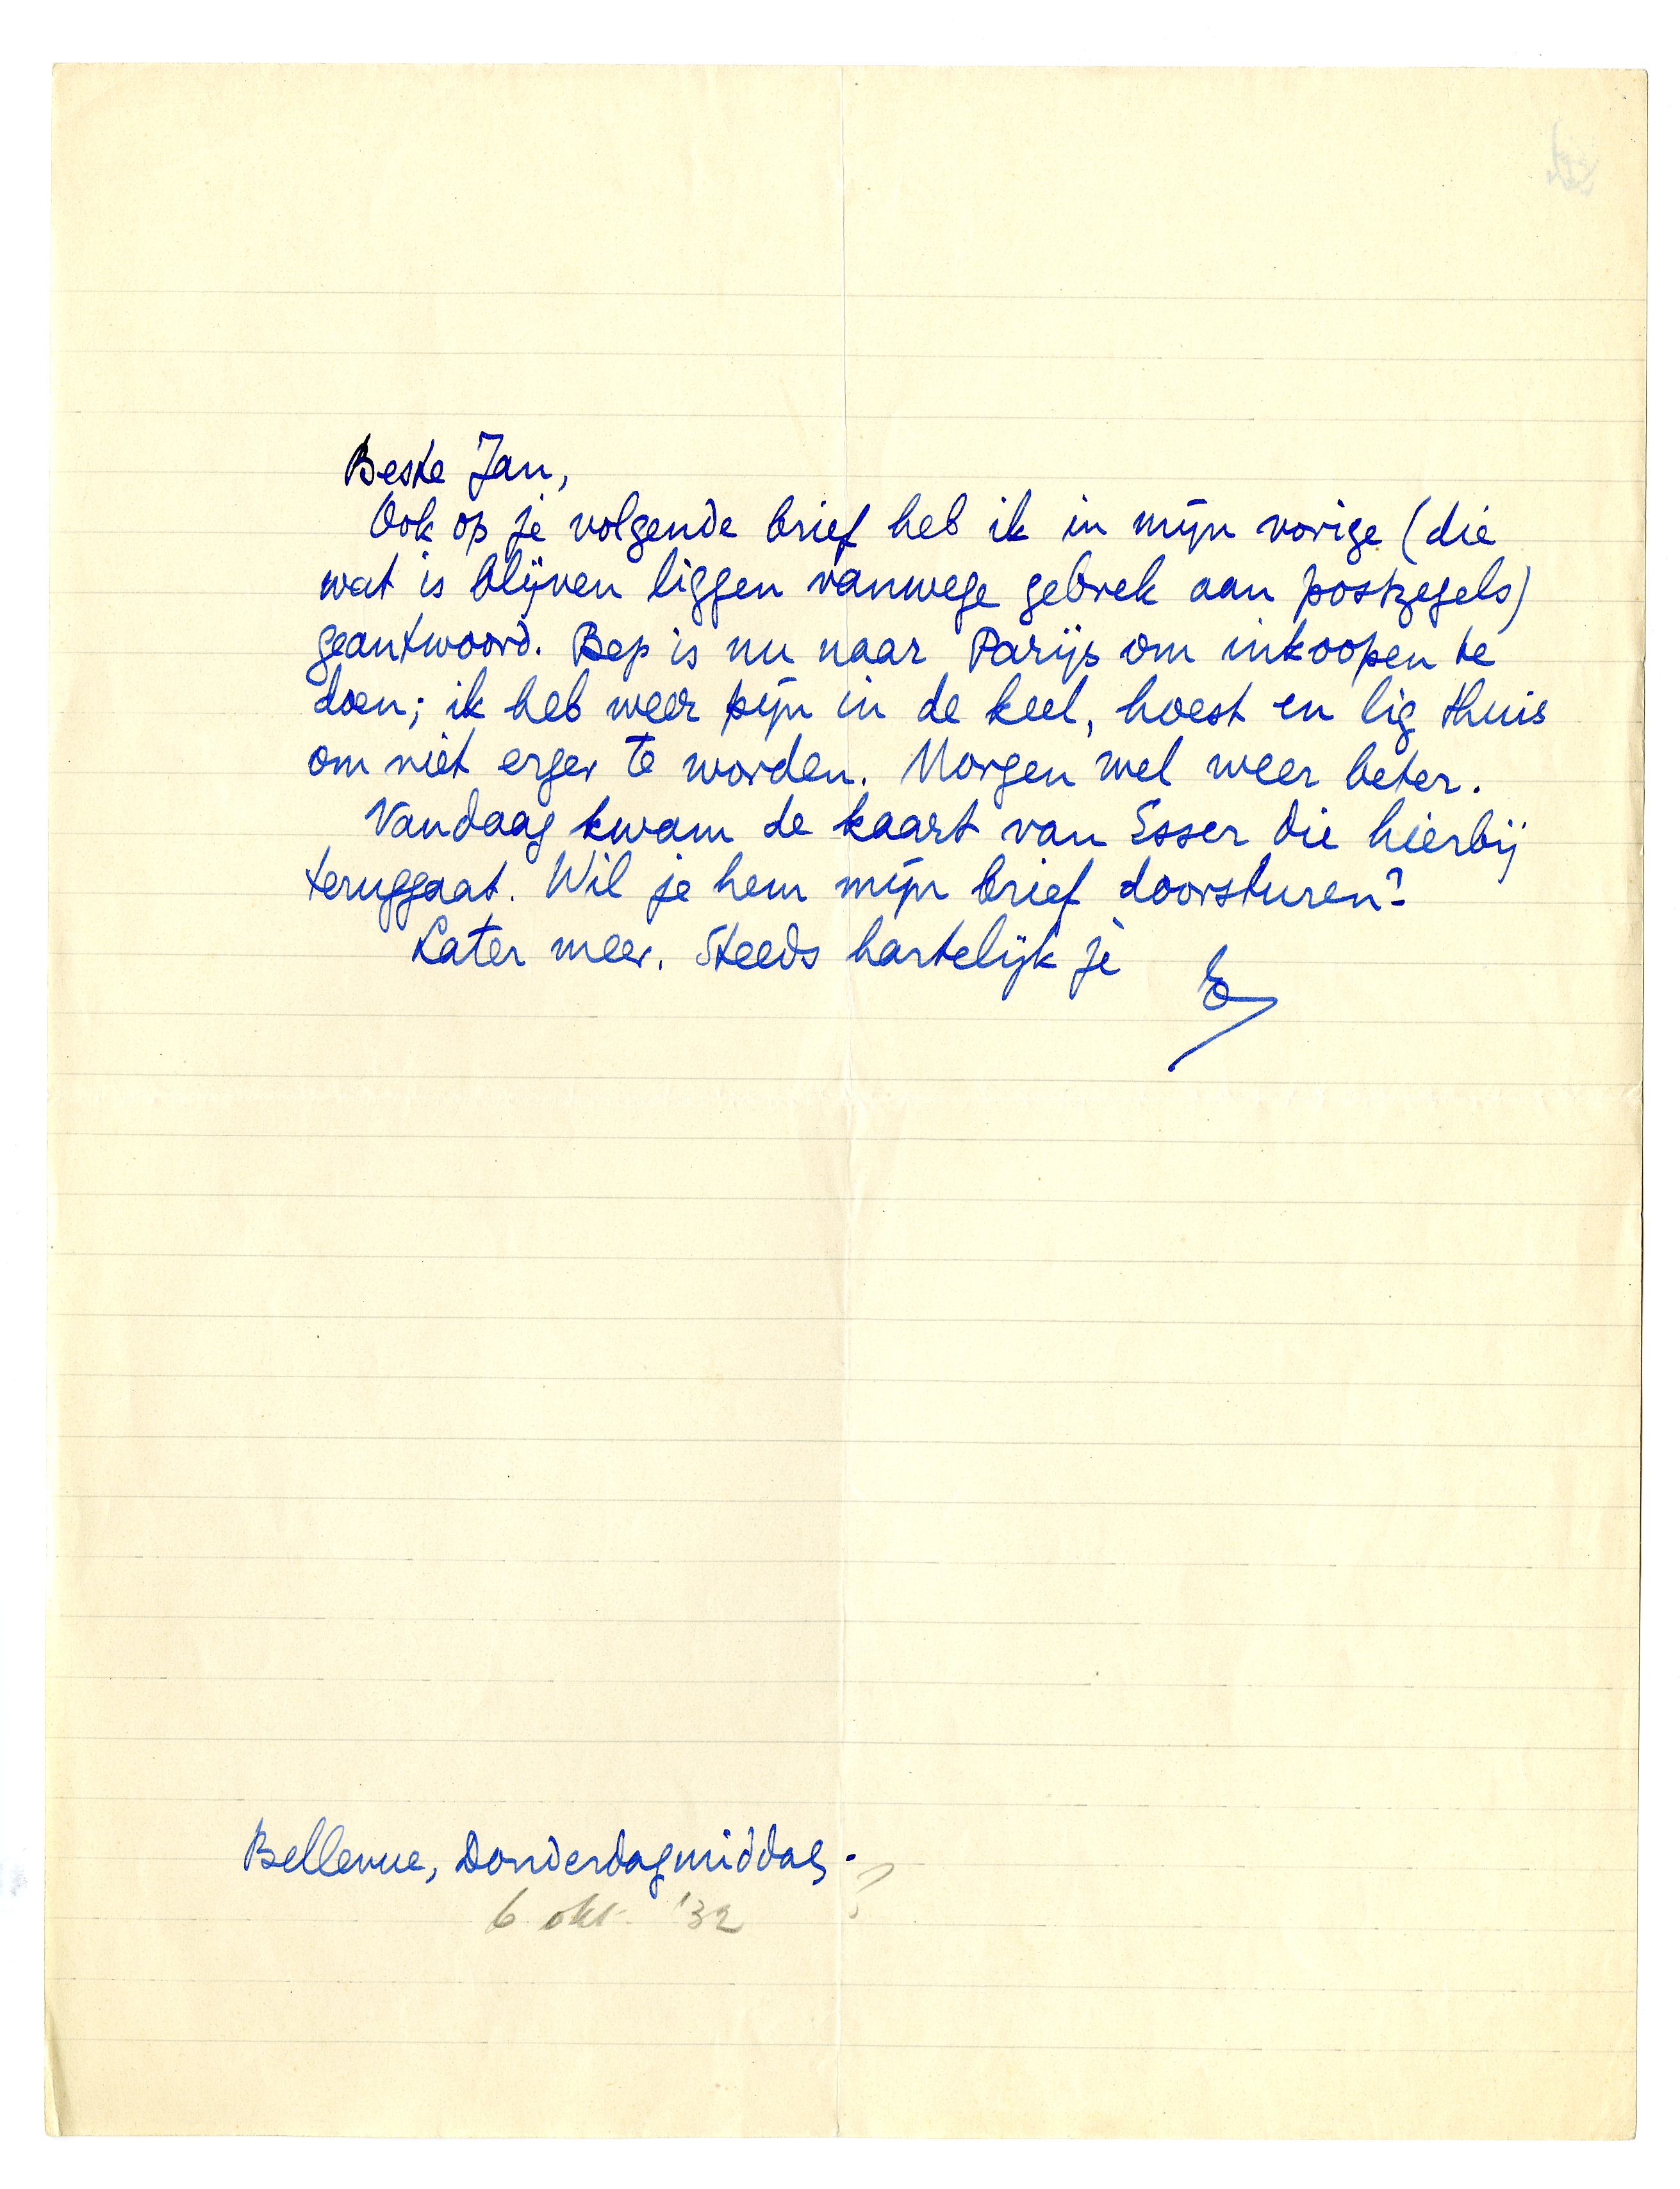 Beste Jan,
Ook op je volgende brief heb ik in mijn vorige (die
wat is blijven liggen vanwege gebrek aan postzegels)
geantwoord. Bep is nu naar Parijs om inkoopen te
doen; ik heb weer pijn in de keel, hoest en lig thuis
om niet erger te worden. Morgen wel weer beter.
Vandaag kwam de kaart van Esser die hierbij
teruggaat. Wil je hem mijn brief doorsturen?
Later meer. Steeds hartelijk je E
Bellevue, Donderdagmiddag.
6 okt. '32 ?